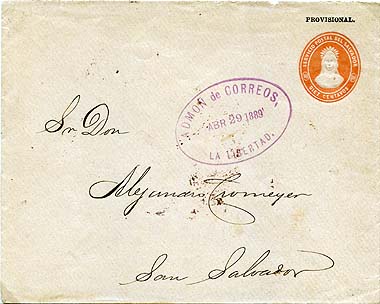 PROVISIONAL.
SERVICIO POSTAL DEL SALVADOR
DIEZ CENTAVOS
ADMON de CORREOS,
ABR 29 1889
LA LIBERTAD.
Sr. Don
Alejandro Cromeyer
San Salvador